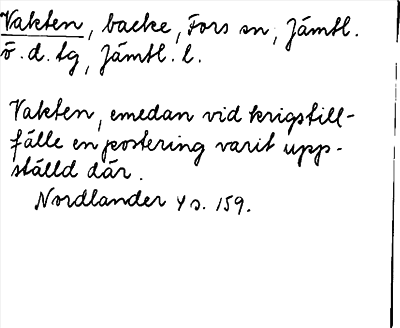 Vakten, backe, Fors sn, Jämtl.
ö. d. tg, Jämtl. l.
Vakten, emedan vid krigstill-
fälle en postering varit upp-
ställd där.
Nordlander 4 s. 159.